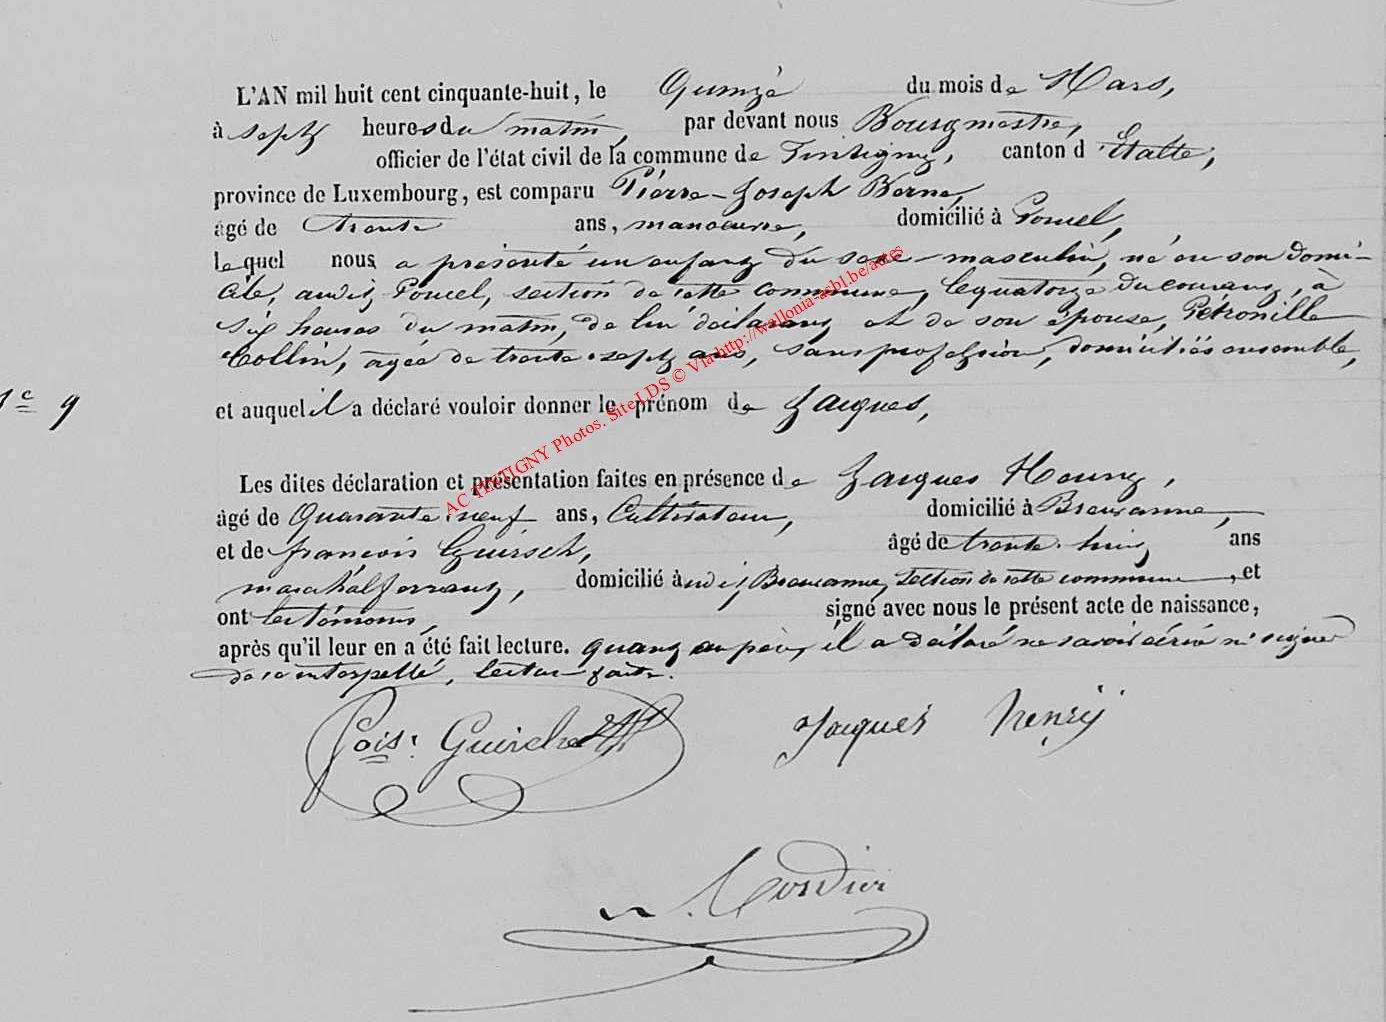 L'AN mil huit cent cinquante-huit, le Quinze du mois de Mars,
à sept heures du matin, par devant nous Bourgmestre,
officier de l'état civil de la commune de Tintigny, canton d'Etalle,
province de Luxembourg, est comparu Pierre-Joseph Berne,
âgé de trente ans, manoeuvre, domicilié à Poncel,
lequel nous a présenté un enfant du sexe masculin, né en son domi-
cile, audit Poncel, section de cette commune, le quatorze du courant, à
six heures du matin, de lui déclarant et de son épouse, Pétronille
Collin, agée de trente-sept ans, sans profession, domiciliés ensemble,
1e 9
et auquel il a déclaré vouloir donner le prénom de Jacques,
Les dites déclaration et présentation faites en présence de Jacques Henry,
âgé de Quarante neuf ans, Cultivateur, domicilié à Breuvanne,
et de françois Guirsch, âgé de trente-huit ans
maréchal ferrant, domicilié audit Breuvanne, section de cette commune, et
ont les témoins, signé avec nous le présent acte de naissance,
après qu'il leur en a été fait lecture. quant au père, il a déclaré ne savoir écrire ni signer
de ce interpellé, lecture faite.
fçois. Guirsch Jacques henrÿ
AC TINTIGNY Photos. Site LDS © Via http://wallonia-asbl.be/actes